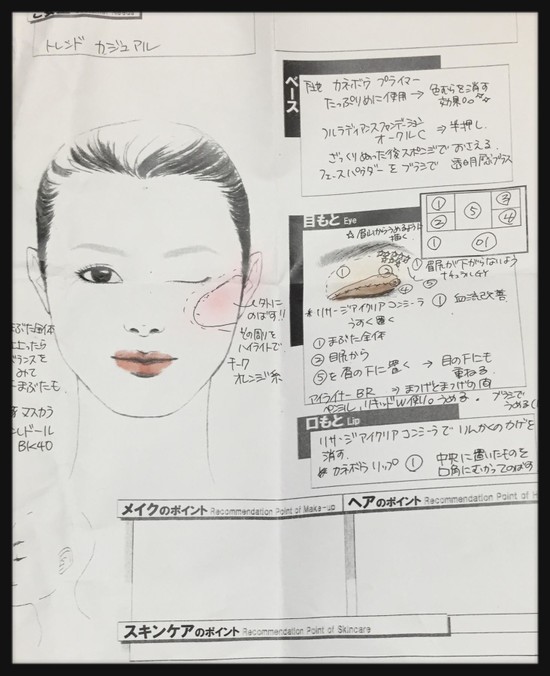 トレンド カジュアル
ベース
下地 カネボウ プライマー
たっぷりめに使用 → 色むらを消す
効果○○
フルラディアンスファンデーション
オークルC ⇒ 半押し
ざっくりぬった後スポンジでおさえる。
フェースパウダーをブラシで 透明感プラス
目もと Eye
☆眉山からうめるように
描く
① ⑤ ③
② ④
① 01
① ②
④ ⑤
① 眉尻が下がらないよう
ナチュラルに
* リサージアイクリアコンシーラ ① 血流改善
うすく置く
① まぶた全体
② 目尻から
⑤を眉の下に置く → 目の下にも
重ねる
アイライナー BR ⇒ まつげとまつげの間
ペンシル、リキッドW使い。うめる。 ブラシで
うめる
口もと Lip
リサージアイクリアコンシーラでりんかくのカゲを
消す
* カネボウリップ ① 中央に置いたものを
口角にむかってのばす
人外に
のばす!!
その周りを
ハイライトで
チーク
オレンジ系
まぶた全体
上ったら
バランスを
みて
下まぶたも
マスカラ
レドール
BK40
メイクのポイント Recommendation Point of Make-up
ヘアのポイント Recommendation Point of H
スキンケアのポイント Recommendation Point of Skincare